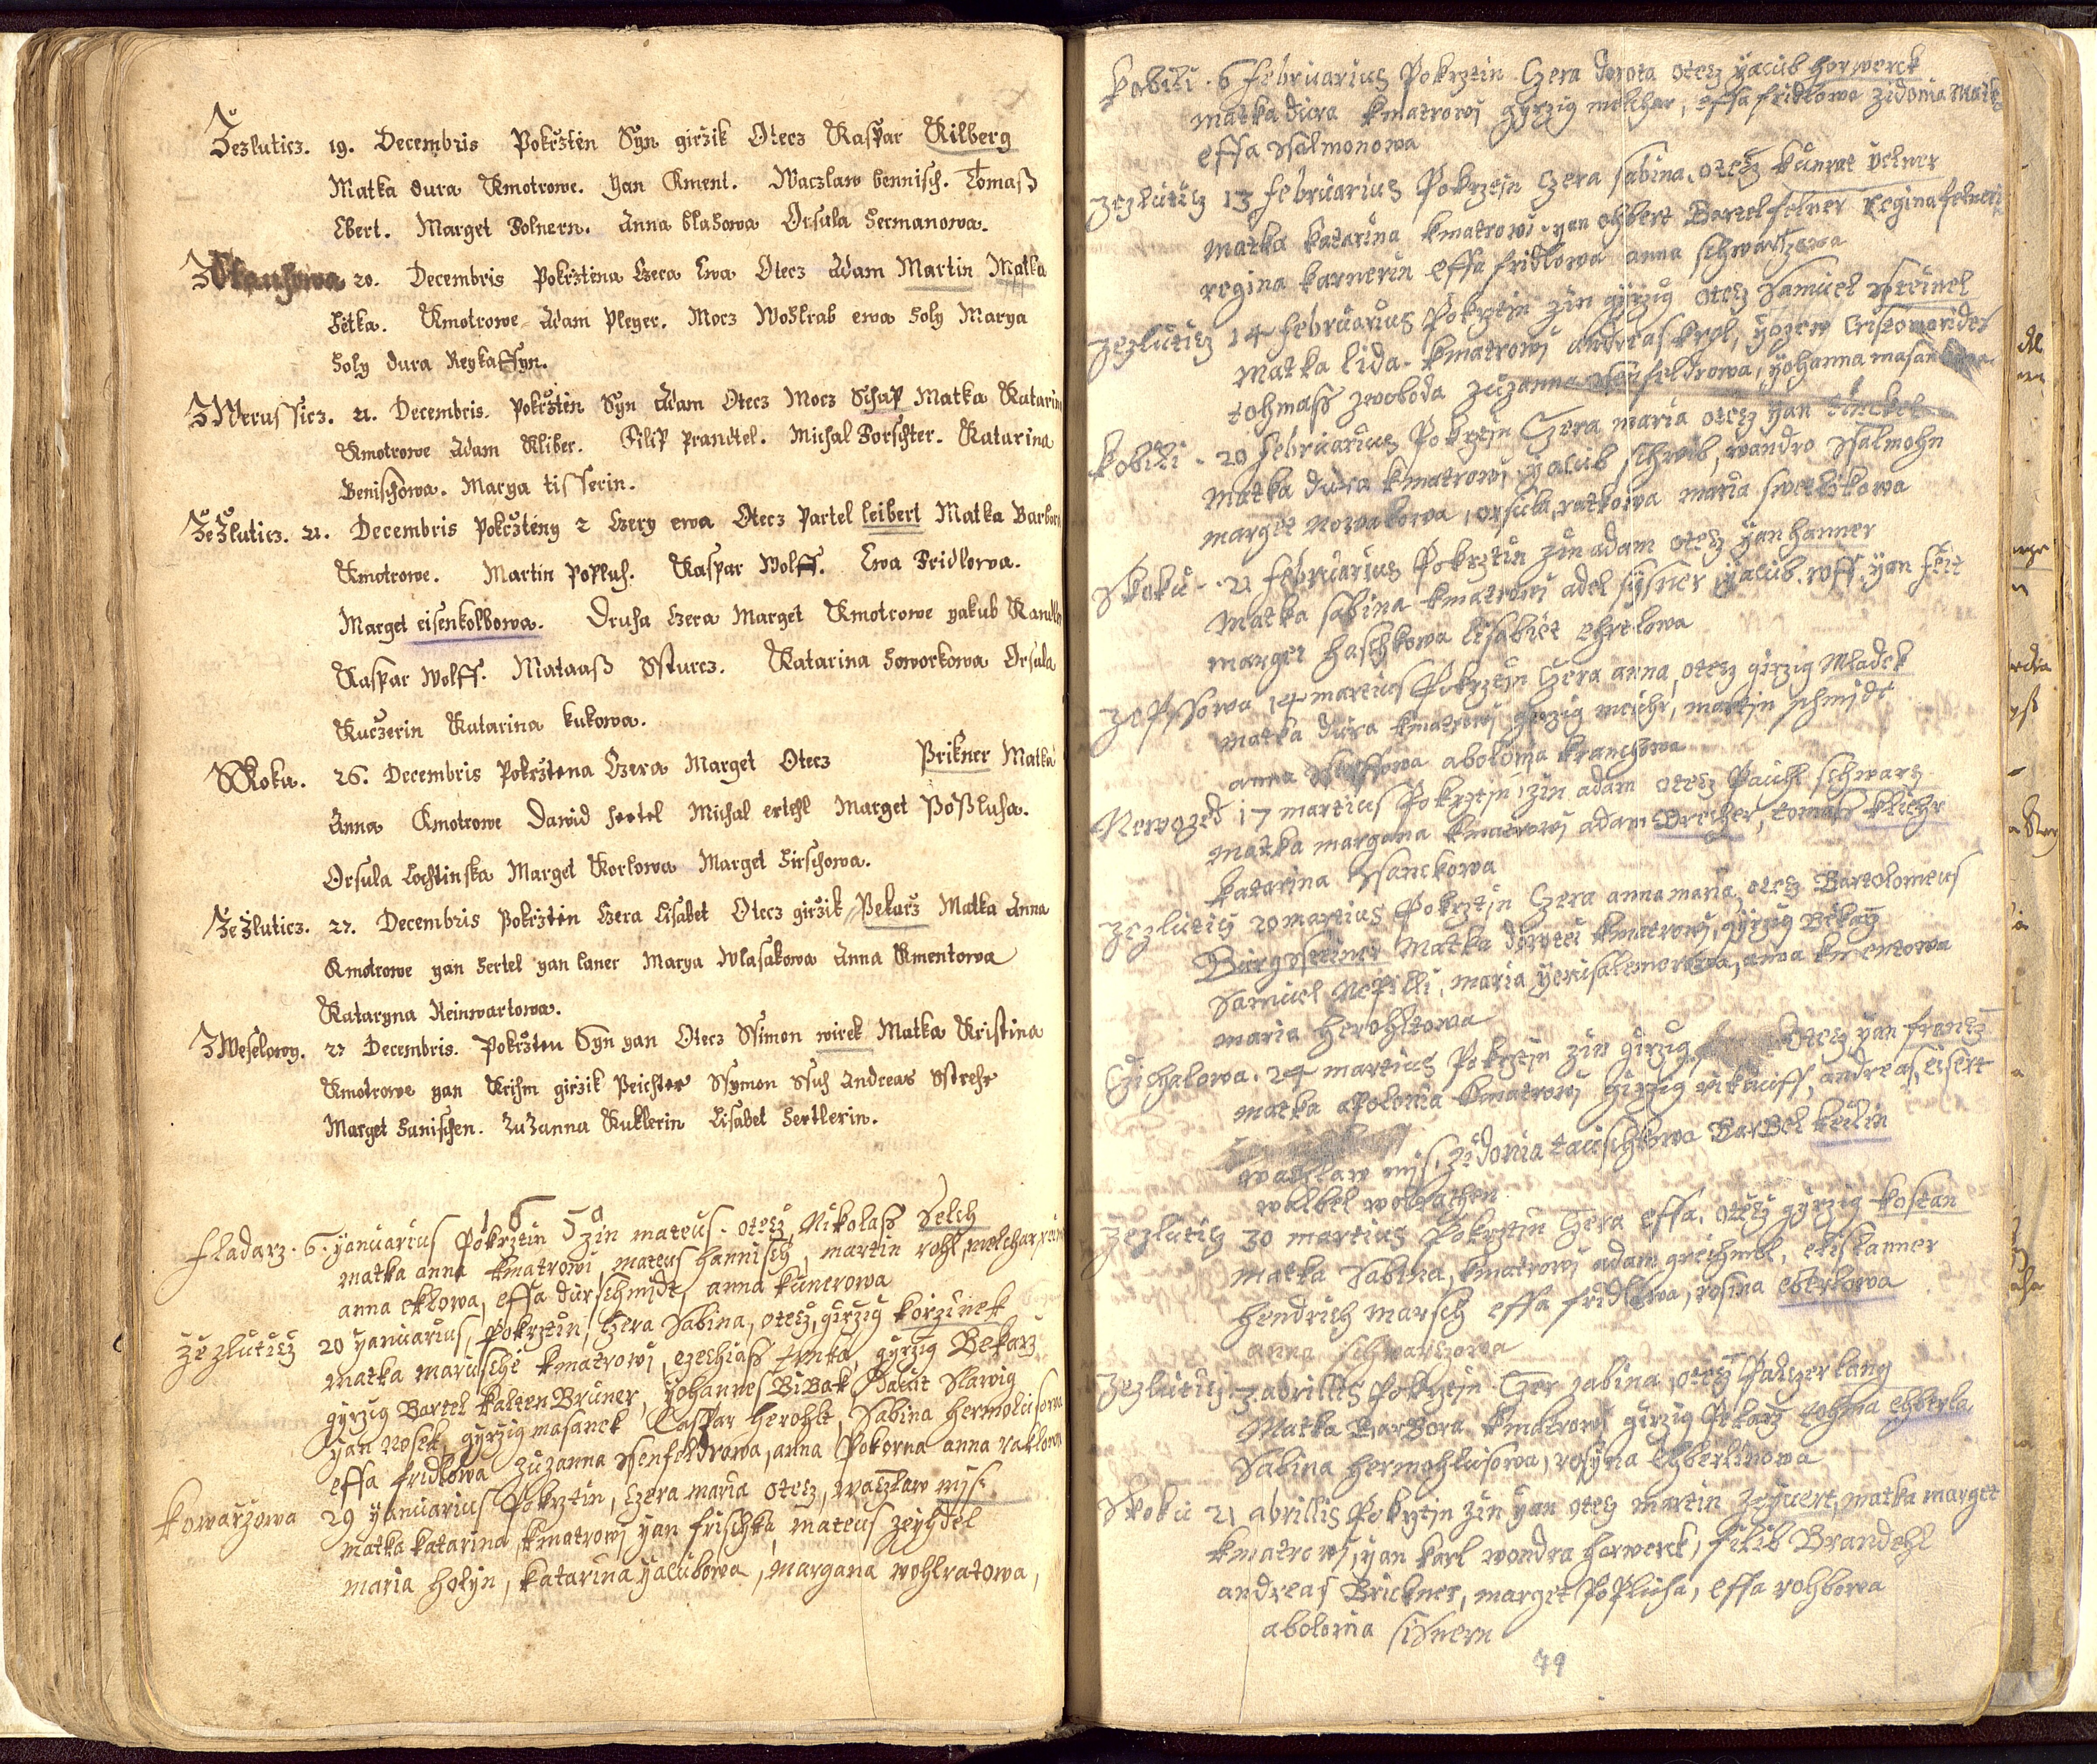 Zezluticz. 19. Decembris Pokrzten Syn girzik Otecz Kaspar Kilberg
Matka dura Kmotrowe. yan Kment. Waczlaw bennisch. Tomaß
Ebert. Marget Folnern. Anna blahowa Orsula Hermanowa.
20. Decembris Pokrztina Czera Ewa Otecz Adam Martin Matka
Hetka. Kmotrowe Adam Pleyer. Mocz Woßkrab ewa Holy Marya
Holy dura Reykaffyn.
ZWerussicz. 21. Decembris. Pokrzten Syn Adam Otecz Mocz Schap Matka Katarin
Kmotrowe Adam Kliber. Filip prandtel. Michal Forschter. Katarina
Benischowa. Marya tisserin.
ZeZluticz. 21. Decembris Pokrzteny 2 Czery ewa Otecz Partel leibert Matka Barbor
Kmotrowe. Martin Popluh. Kaspar Wolff. Ewa Fridlowa.
Marget eisenkolbowa. Druha Czera Marget Kmotrowe yakub
Kaspar Wolff. Mataaß Ssturcz. Katarina Howorkowa Orsula
Kuczerin Katarina kukowa.
SKoku. 26. Decembris Pokrztena Czera Marget Otecz Prikner Matka
Anna Kmotrowe Dawid Hertel Michal ertehl Marget Poßluha.
Orsula Lochtinska Marget Korlowa Marget Hirschowa.
ZeZluticz. 27. Decembris Pokrzten Czera Lisabet Otecz girzik Pekarz Matka Anna
Kmotrowe yan Hertel yan laner Marya Wlasakowa Anna Kmentowa
Kataryna Reinwartowa.
ZWeselowy. 27 Decembris. Pokrzten Syn yan Otecz Ssimon wirek Matka Kristina
Kmotrowe yan Krihm girzik Peichter Ssymon Ssuh Andreas Sstrehr
Marget Hanischen. ZuZanna Kuklerin Lisabet Hertlerin.
1659
fladarz. 6. yanuarius Pokrztin zin mateus. otecz, Nikolaß Selch
matka anna kmatrowi, mateus hannisch, martin rohl, melchar
anna eklowa, effa durschmidt, anna kunerowa
zezluticz 20 yanuarius, Pokrztin, czera Sabina, otecz, girzig korzinek
matka marusche kmatrowi, ezechiass trnka, gyrzig Bekarz
gyrzig Bartel kaltenBruner, yohannes BiBak, dawit Slawig
yan Nosek, gyrzig masanek Caspar herohlt, Sabina hermolisowa
effa fridlowa zuzanna Ssenfeldrowa, anna Pokorna anna
kowarzowa 29 yanuarius Pokrztin, czera maria otecz, waczlaw mis
matka katarina, kmatrowi yan frischka mateus zeyhdel
maria holyn, katarina yacubowa, margana wohlratowa,
kobili. 6 februarius Pokrztin Czera dorota otecz yacub horwerck
matka dura kmatrowi gyrzig melchar, effa fridlowa zidonia
effa Ssalmonowa
zezluticz 13 februarius Pokrztin czera sabina, otecz kunrat yelner
matka katarina kmatrowi yan ehbert Bartel felner regina felner
regina karnerin effa fridlowa anna schwartzowa
zezluticz 14 februarius Pokrztin zin gyrzig otecz Samuel Steinel
matka lida. kmatrowi andreas krol,
tohmass zwoboda zuzanna Ssenfeldrowa, yohanna
kobili. 20 februarius Pokrztin Czera maria otecz yan
matka dura kmatrowi, yacub schwib, wandro Ssalmohn
marget nowakowa, orsula, ratkowa maria swetlikowa
Skoku. 21 februarius Pokrztin zin adam otecz yan hanner
matka sabina kmatrowi adel yacub. roff. yan feit
marget haschkowa lisabet ehrtlowa
14 martius Pokrztin Czera anna, otecz girzig Mladek
matka dura kmatrowi girzig meiehr, martin schmidt
anna abolonia kranchowa
Newozed 17 martius Pokrztin, zin adam otecz Pauhl schwarz
matka margana kmatrowi adam Drescher, tomass kliehr
katarina Ssanckowa
zezluticz 20 martius Pokrztin Czera annamaria, otecz Bartolomeus
Burgsteiner Matka dorotei kmatrowi, gyrzig Bekarz
Samuel Nepilli, maria yerusalemorowa, anna kmentowa
maria herohltowa
Czichalowa. 24 martius Pokrztin zin girzig otecz yan frantz
matka apolonia kmatrowi girzig andreas, eisert
waczlaw mis, zidonia tauschkowa BarBel keilin
walbel
zezluticz 30 martius Pokrztin Czera effa. otecz gyrzig kostan
matka Sabina, kmatrowi adam greichmbl, elis kanner
hendrich marsch effa fridlowa, rosina eberlowa
anna schwarczowa
zezluticz 3. abrillis Pokrztin Czer zabina, otecz Paltzer lang
Matka BarBora kmatrowi girzig Pekarz tohma ehberla
Sabina hermohlisowa, rosyna Ehberlinowa
Skoku 21 abrillis Pokrztin zin yan otecz martin Zeyvert, matka marget
kmatrowi, yan karl wondra horwerck, filib Brandehl
andreas Brickner, marget Poplicha, effa rohbowa
abolonia
79